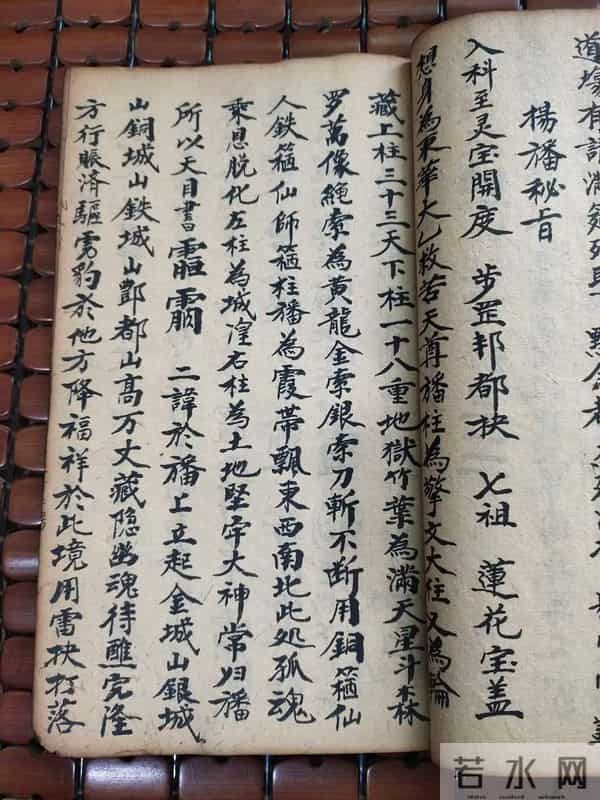 道場有請滿
楊旛秘旨
入科至灵宝開度 步罡邦都抉 七祖 蓮花宝盖
想身為東華大乙救苦天尊旛柱為擎文大柱又為輪
藏上柱三十三天下柱一十八重地獄竹葉為滿天星斗森
罗萬像繩索為黃龍金索銀索刀斬不断用銅箍仙
人鉄箍仙師箍柱旛為霞帶飄東西南北此処孤魂
乘恩脱化左柱為城湟右柱為土地堅牢大神常妇旛
所以天目書 二諱於旛上立起金城山銀城
山銅城山鉄城山酆都山高万丈藏隐幽魂待醮完隆
方行賑済驅豹於他方降福祥於此境用雷抉打落
若水网